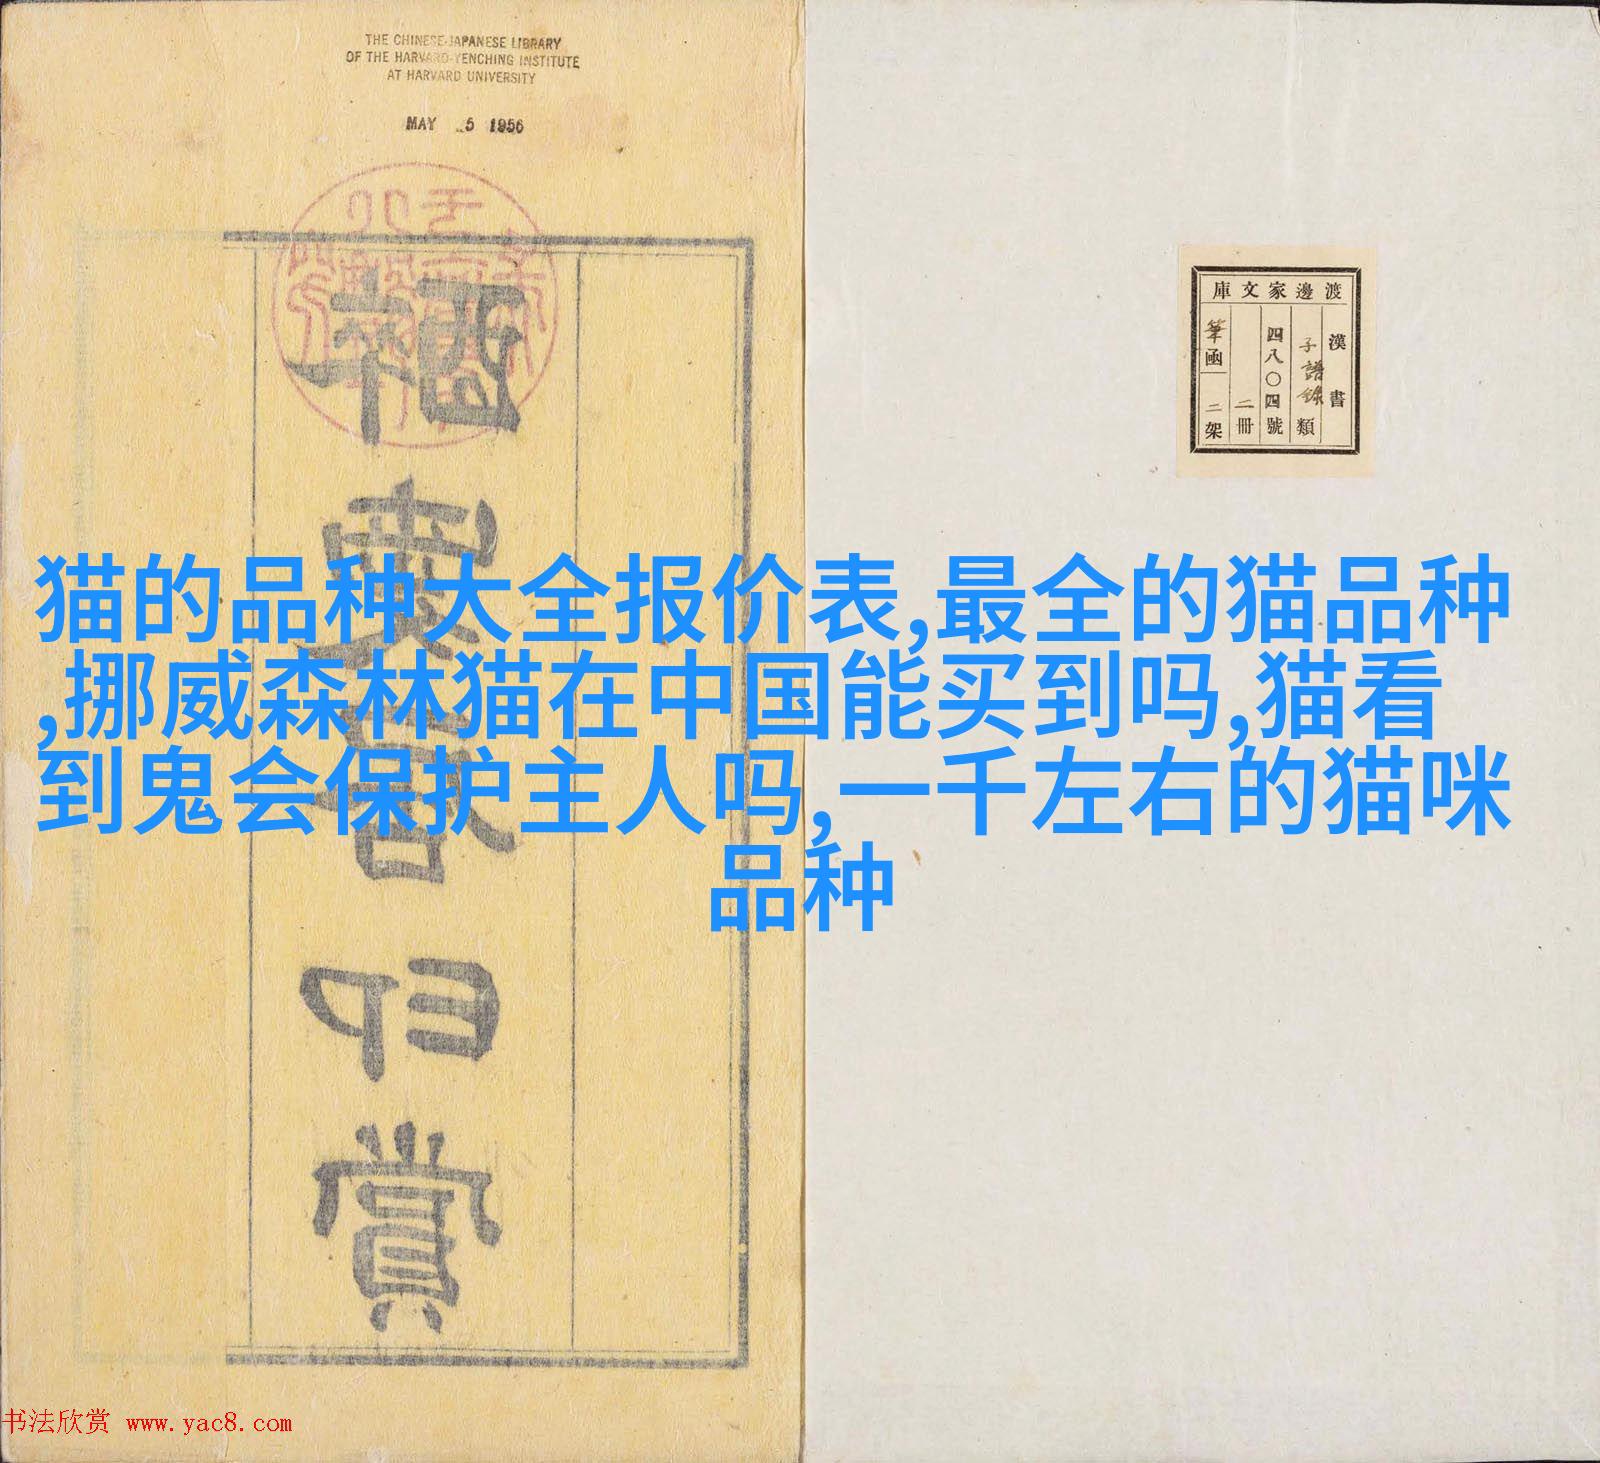 THE CHINESE-JAPANESE LIBRARY
OF THE HARVARD-YENCHING INSTITUTE
AT HARVARD UNIVERSITY
MAY 5 1956
渡邊家文庫
漢書
子譜錄類
四八〇四號
二冊
筆函二架
猫的品种大全报价表,最全的猫品种
,挪威森林猫在中国能买到吗,猫看
到鬼会保护主人吗,一千左右的猫咪
品种
賞
书法欣赏 www.yac8.com